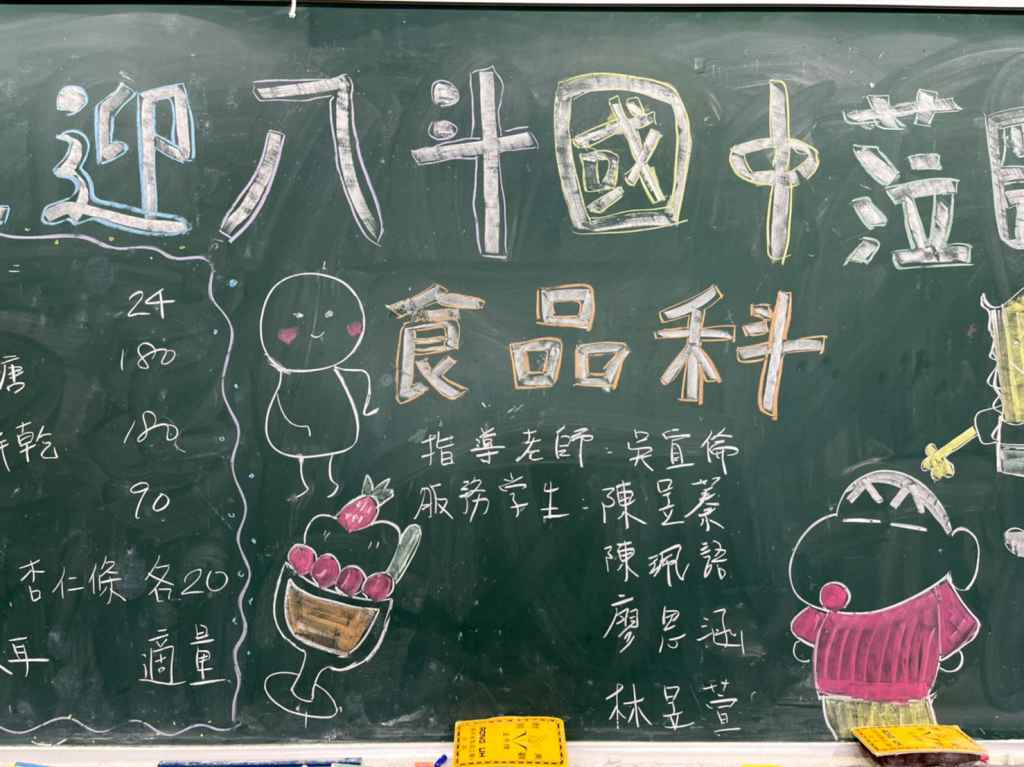 迎八斗國中蒞
食品科
24
糖 180
餅乾 180
90
杏仁條 各20
耳 適量
指導老師：吳宜倫
服務学生：陳昱蓁
陳珮語
廖思涵
林昱萱